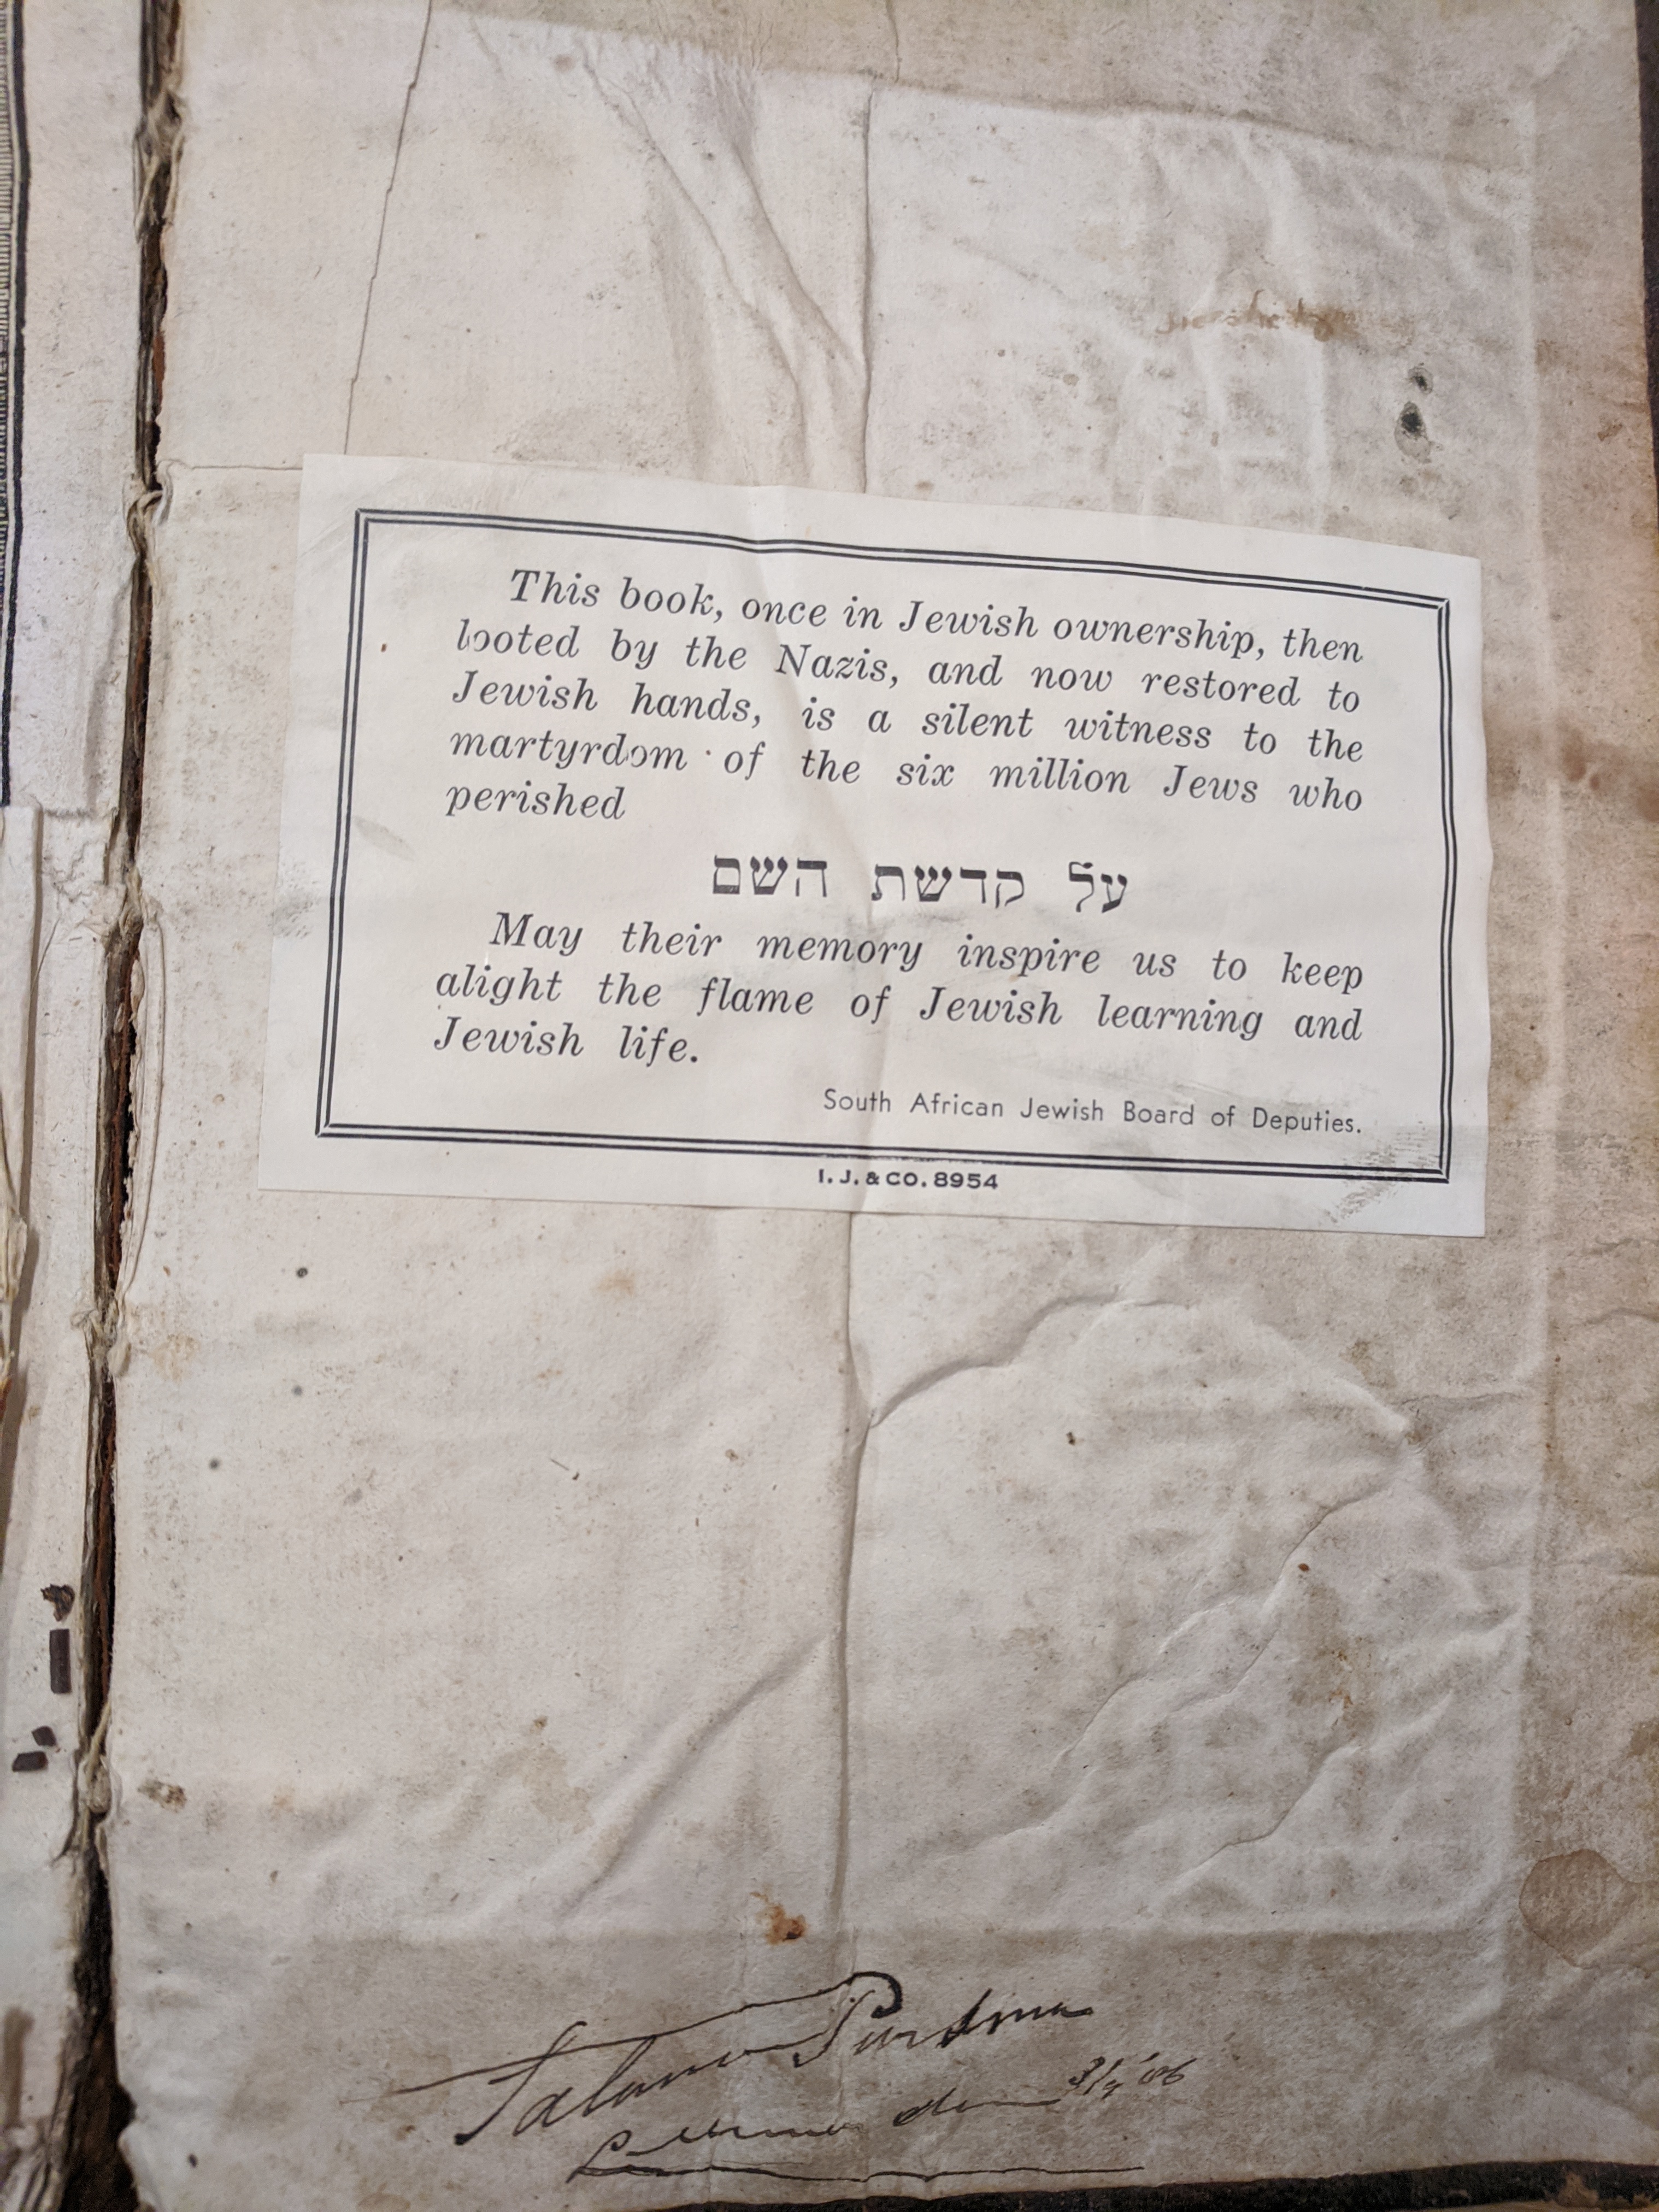 This book, once in Jewish ownership, then
looted by the Nazis, and now restored to
Jewish hands, is a silent witness to the
martyrdom of the six million Jews who
perished
על קדשת השם
May their memory inspire us to keep
alight the flame of Jewish learning and
Jewish life.
South African Jewish Board of Deputies.
I. J. & CO. 8954